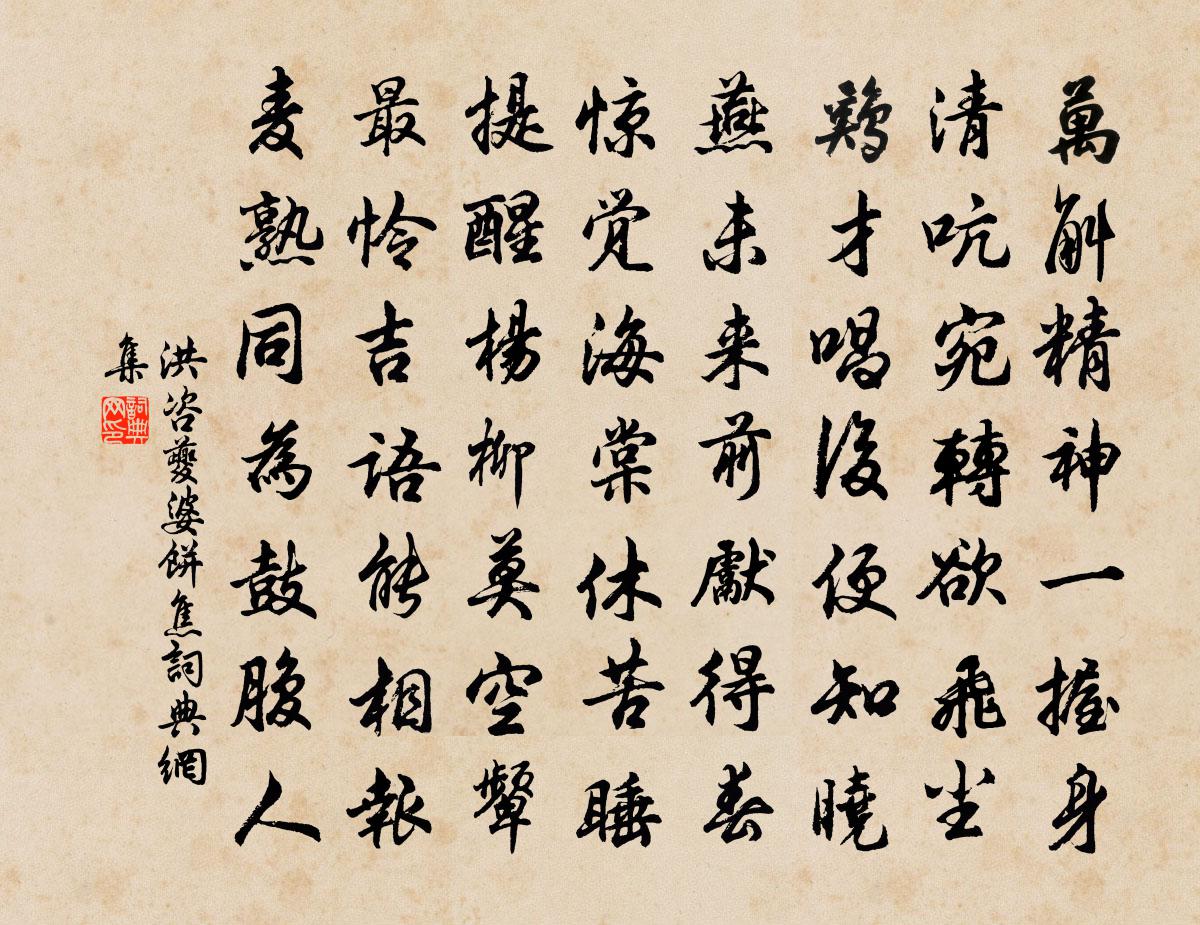 萬斛精神一握身
清吭宛轉欲飛尘
鶏才唱後便知曉
燕未来前獻得春
惊覚海棠休苦睡
提醒楊柳莫空顰
最怜吉語能相報
麦熟同為鼓腹人
洪咨夔婆餅焦詞典網
集
詞典
网印